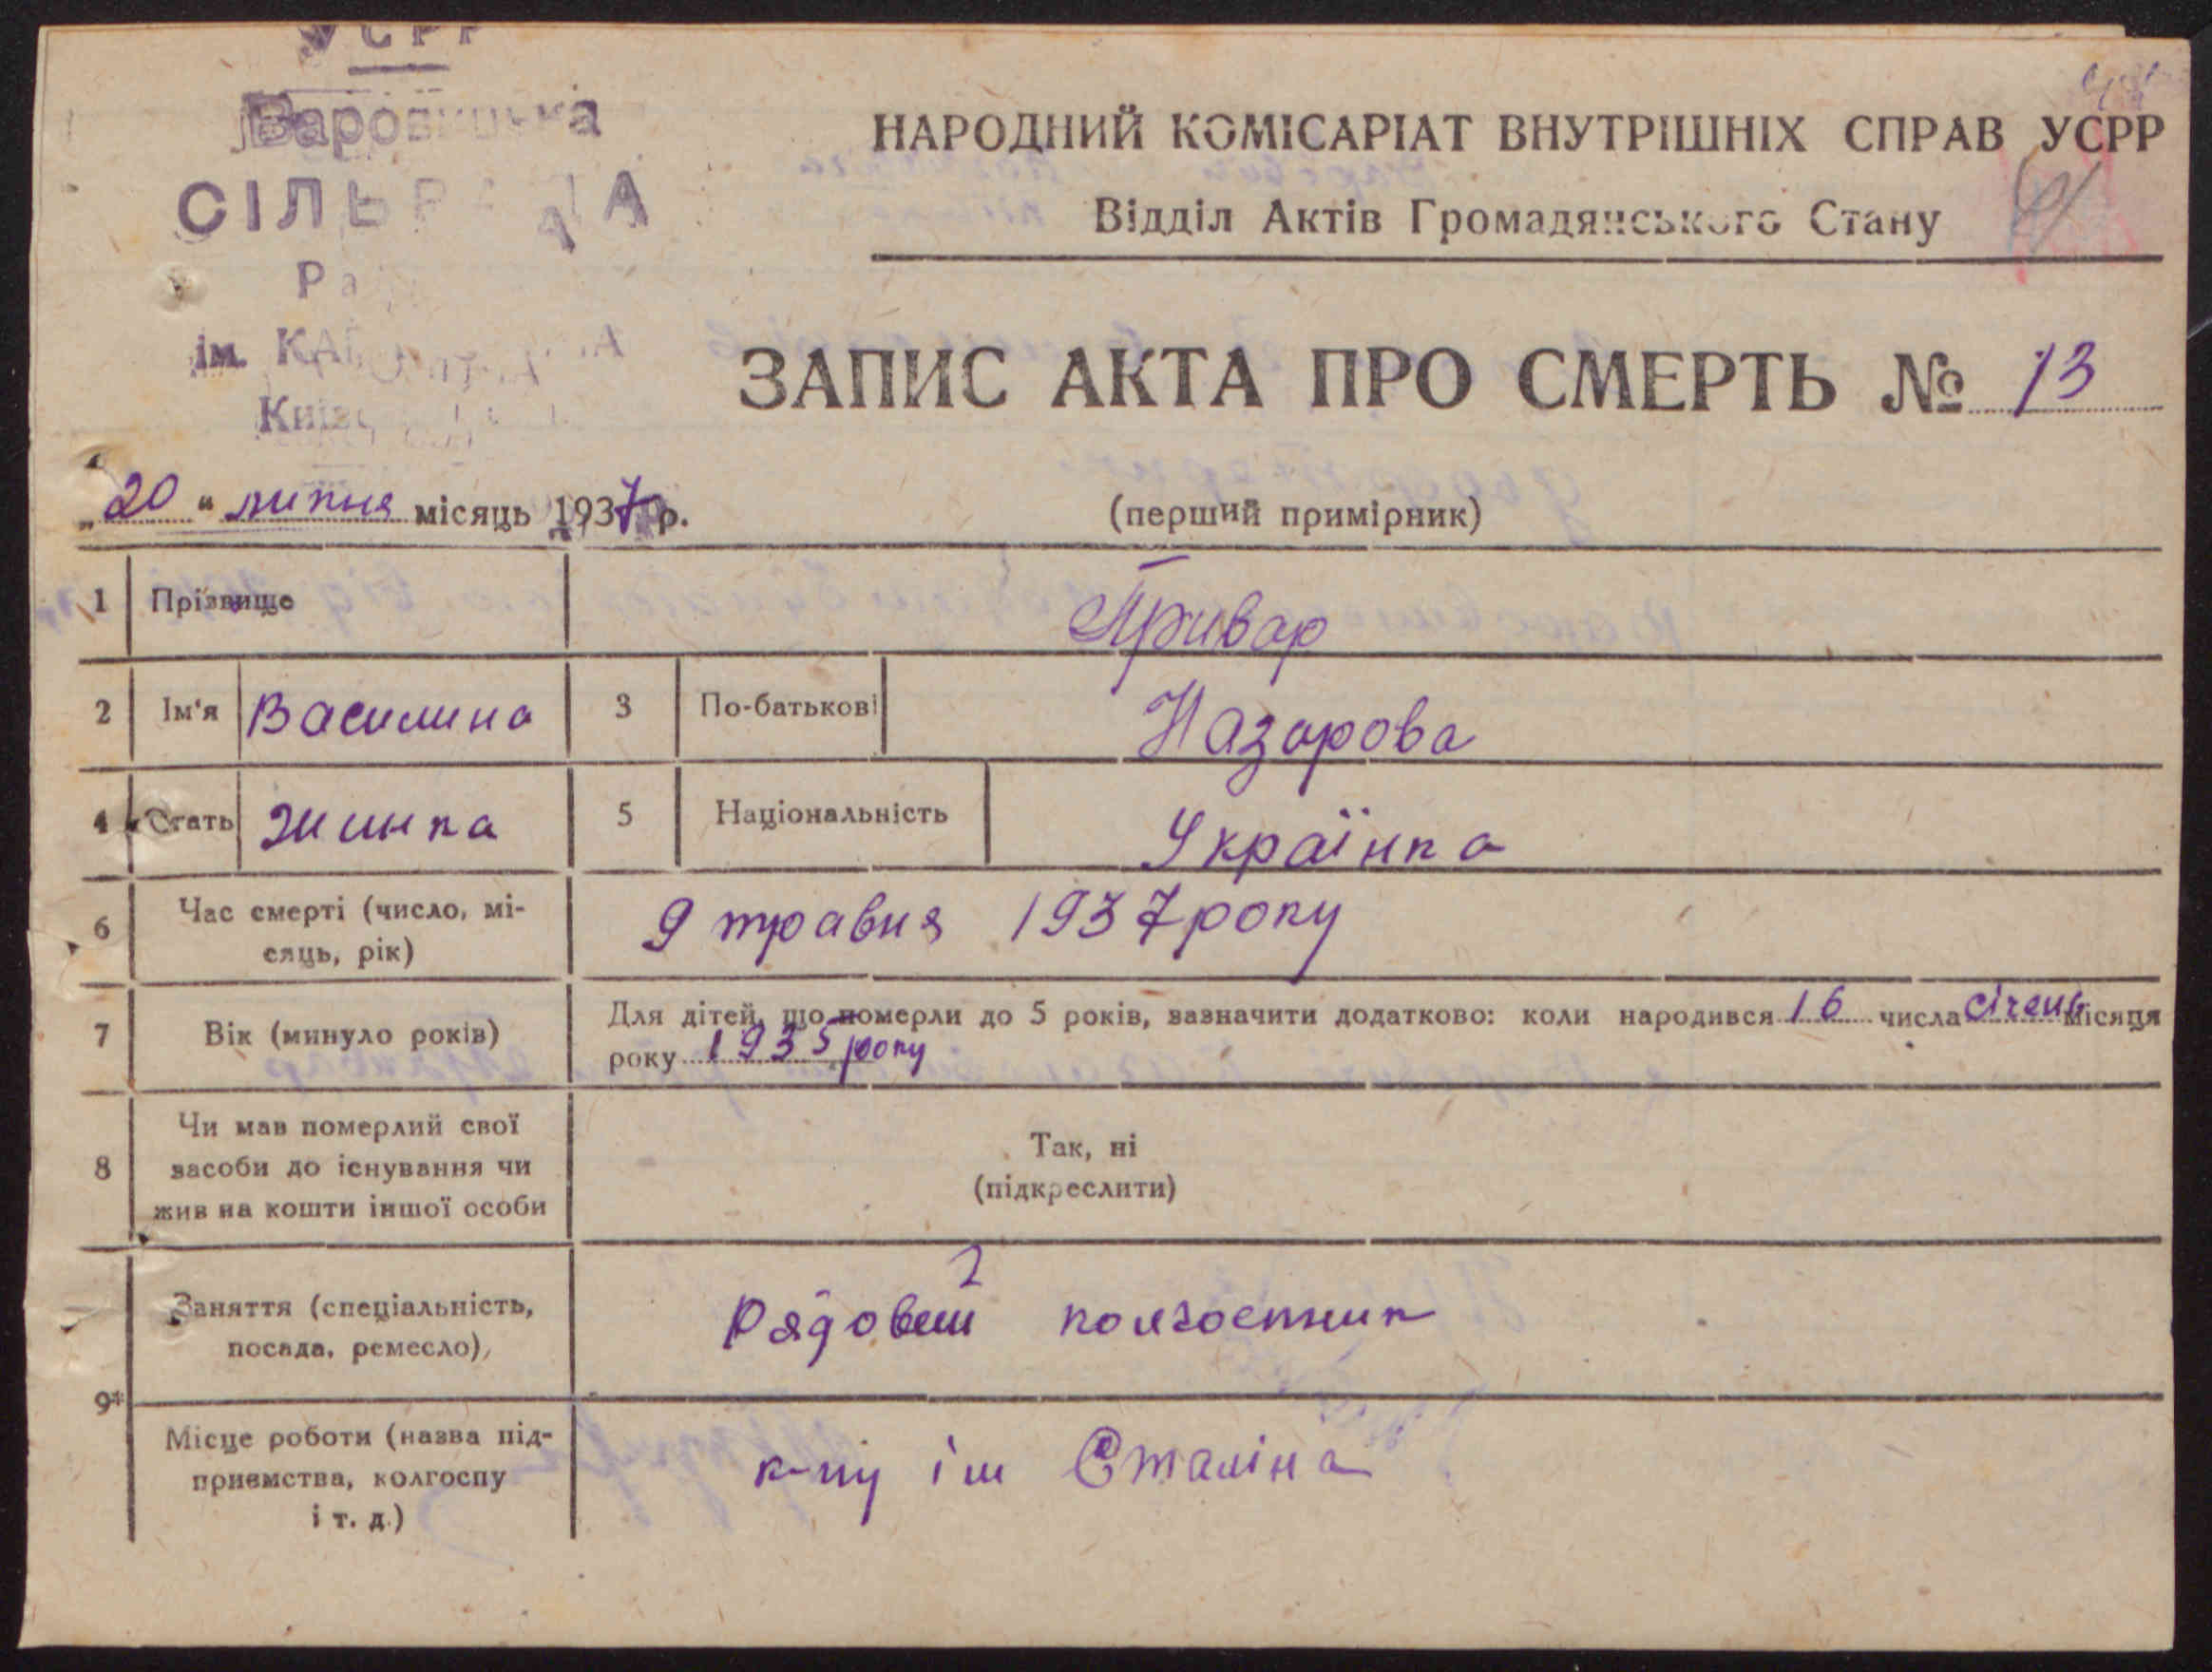 УСРР
СІЛЬРАДА
ім.
НАРОДНИЙ КОМІСАРІАТ ВНУТРІШНІХ СПРАВ УСРР
Відділ Актів Громадянського Стану
ЗАПИС АКТА ПРО СМЕРТЬ № 13
„20“ липня місяць 1937 р.
(перший примірник)
1 Прізвище Привар
2 Ім'я Василина 3 По-батькові Назарова
4 Стать жинка 5 Національність Українка
6 Час смерті (число, мі-
сяць, рік) 9 травня 1937 року
7 Вік (минуло років) Для дітей, що померли до 5 років, зазначити додатково: коли народився 16 числа січень місяця
року 1935 року
8 Чи мав померлий свої
засоби до існування чи
жив на кошти іншої особи
Так, ні
(підкреслити)
9*
Заняття (спеціальність,
посада, ремесло), Рядовий колгоспник
Місце роботи (назва під-
приємства, колгоспу
і т. д.)
к-пу ім Сталіна